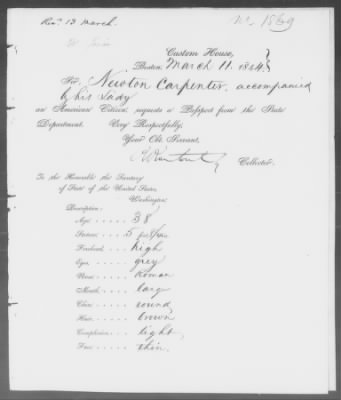 Rec. 13 March.
No. 1869
Custom House,
Boston, March 11. 1864.
Sir, Newton Carpenter, accompanied
by his Lady
an American Citizen, requests a Passport from the State
Department. Very Respectfully,
Your Obt. Servant,
Collector.
To the Honorable the Secretary
of State of the United States,
Washington.
Description:
Age, .... 38
Stature, .... 5 feet
Forehead, .... high
Eyes, .... grey
Nose, .... Roman
Mouth, .... larg
Chin, .... round
Hair, .... brown
Complexion, .... light,
Face, .... thin.